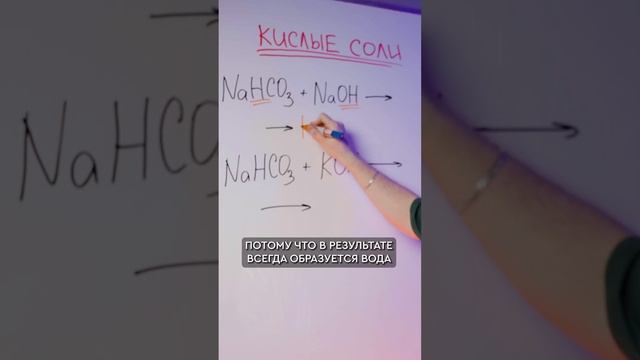 КИСЛЫЕ СОЛИ
NaHCO₃ + NaOH →
→
NaHCO₃ + KO
→
ПОТОМУ ЧТО В РЕЗУЛЬТАТЕ
ВСЕГДА ОБРАЗУЕТСЯ ВОДА